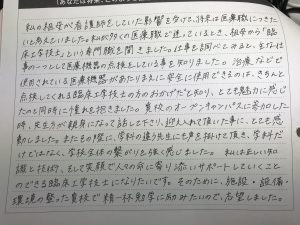 私の祖母が看護師をしていた影響を受け、将来は医療職につきた
いと考えていました。私が多くの医療職で迷っているとき、祖母から「臨
床工学技士」という専門職を聞きました。仕事を調べてみると、主な仕
事の一つとして医療機器の点検をしている事を知りました。治療などで
使用されている医療機器があたりまえに安全に使用できるのは、きちんと
点検してくれる臨床工学技士の方のおかげだと知り、とても魅力に感じ
たのと同時に憧れを抱きました。貴校のオープンキャンパスに参加した
時、先生方が親身になって話して下さり、迎え入れて頂いた事に、とても感
動しました。またその際に、学科の違う先生にも声を掛けて頂き、学科だ
けではなく、学校全体の繋がりを強く感じました。私は正しい知
識と技術、そして笑顔で人々の命に寄り添いサポートしていくこと
のできる臨床工学技士になりたいです。そのために、施設・設備・
環境の整った貴校で精一杯勉学に励みたいので、志望しました。